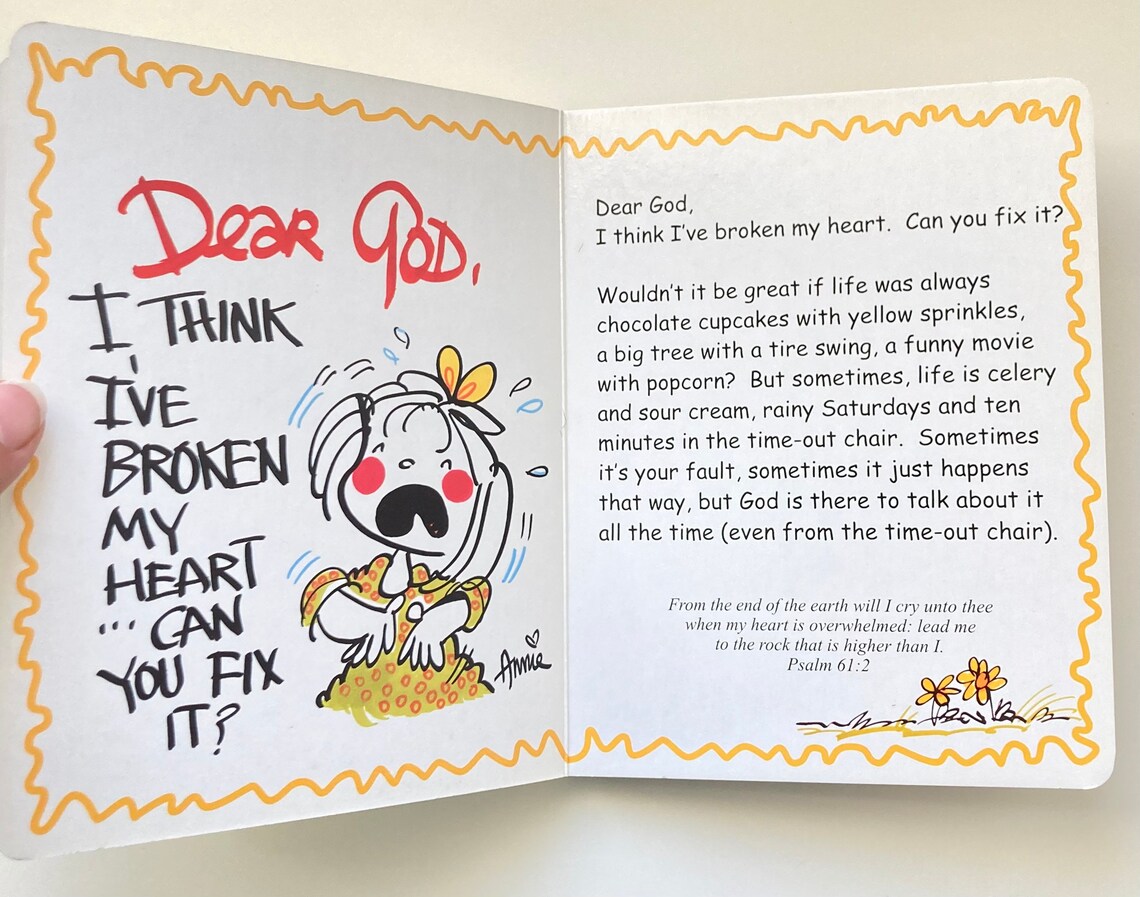 Dear God,
I THINK
I'VE
BROKEN
MY
HEART
... CAN
YOU FIX
IT?
Annie
Dear God,
I think I've broken my heart.  Can you fix it?
Wouldn't it be great if life was always
chocolate cupcakes with yellow sprinkles,
a big tree with a tire swing, a funny movie
with popcorn?  But sometimes, life is celery
and sour cream, rainy Saturdays and ten
minutes in the time-out chair.  Sometimes
it's your fault, sometimes it just happens
that way, but God is there to talk about it
all the time (even from the time-out chair).
From the end of the earth will I cry unto thee
when my heart is overwhelmed: lead me
to the rock that is higher than I.
Psalm 61:2